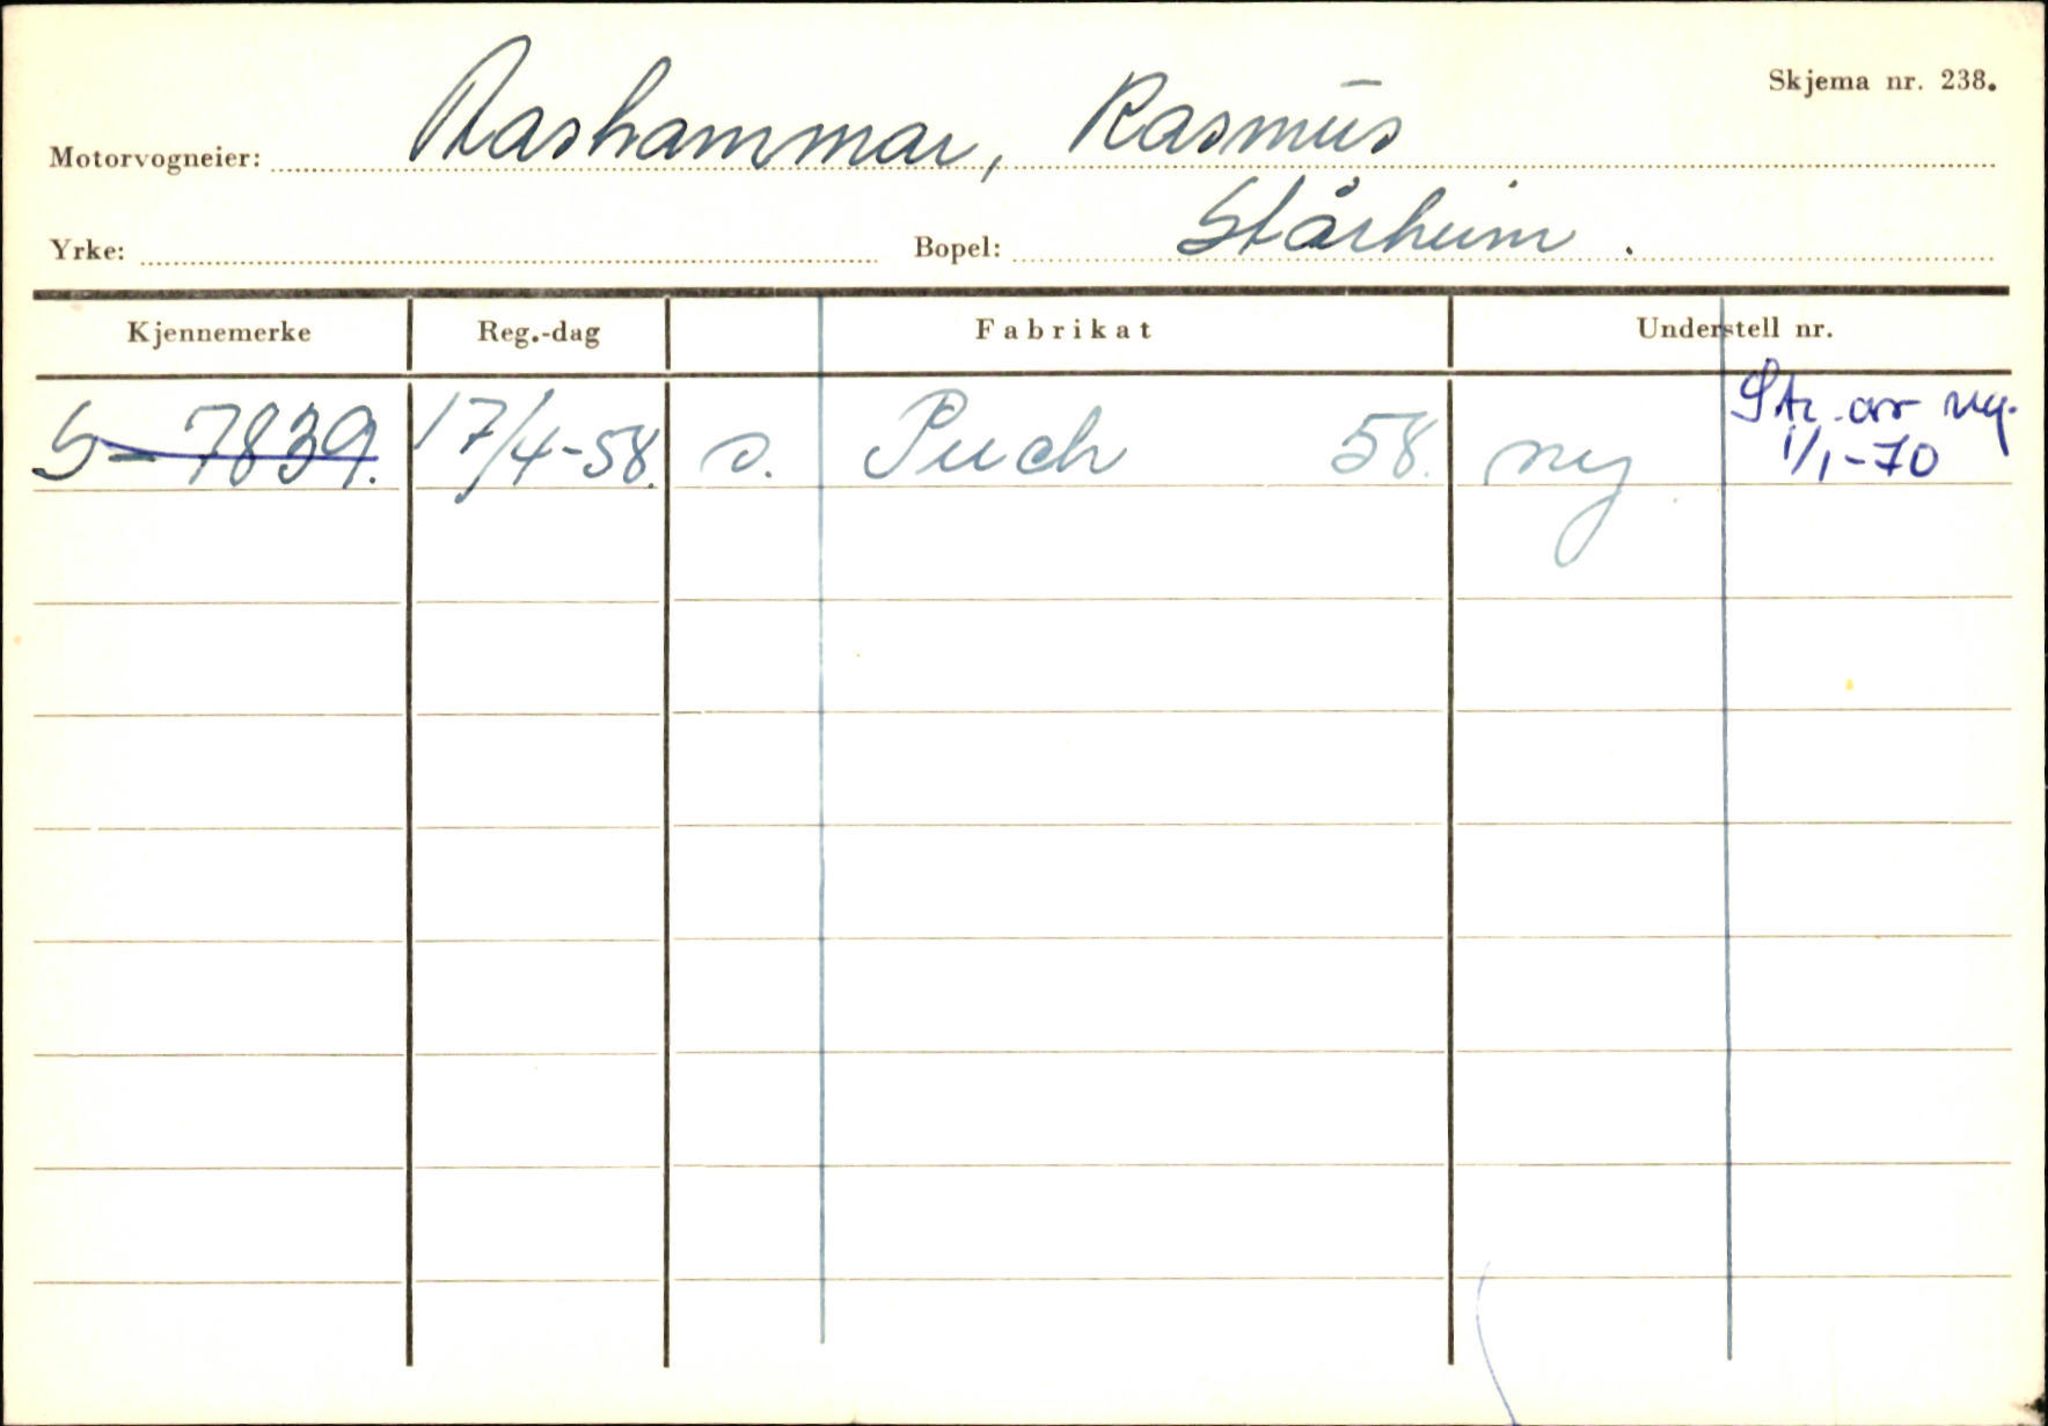 Skjema nr. 238.
Motorvogneier: Rashammar, Rasmus
Yrke: Bopel: Stårheim.
Kjennemerke Reg.-dag Fabrikat Understell nr.
S-7839. 17/4-58. s. Puch 58. ny Str. av reg.
1/1-70